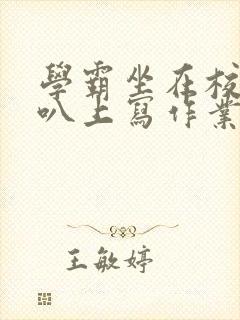 學霸坐在校
叭上寫作業
王敏婷